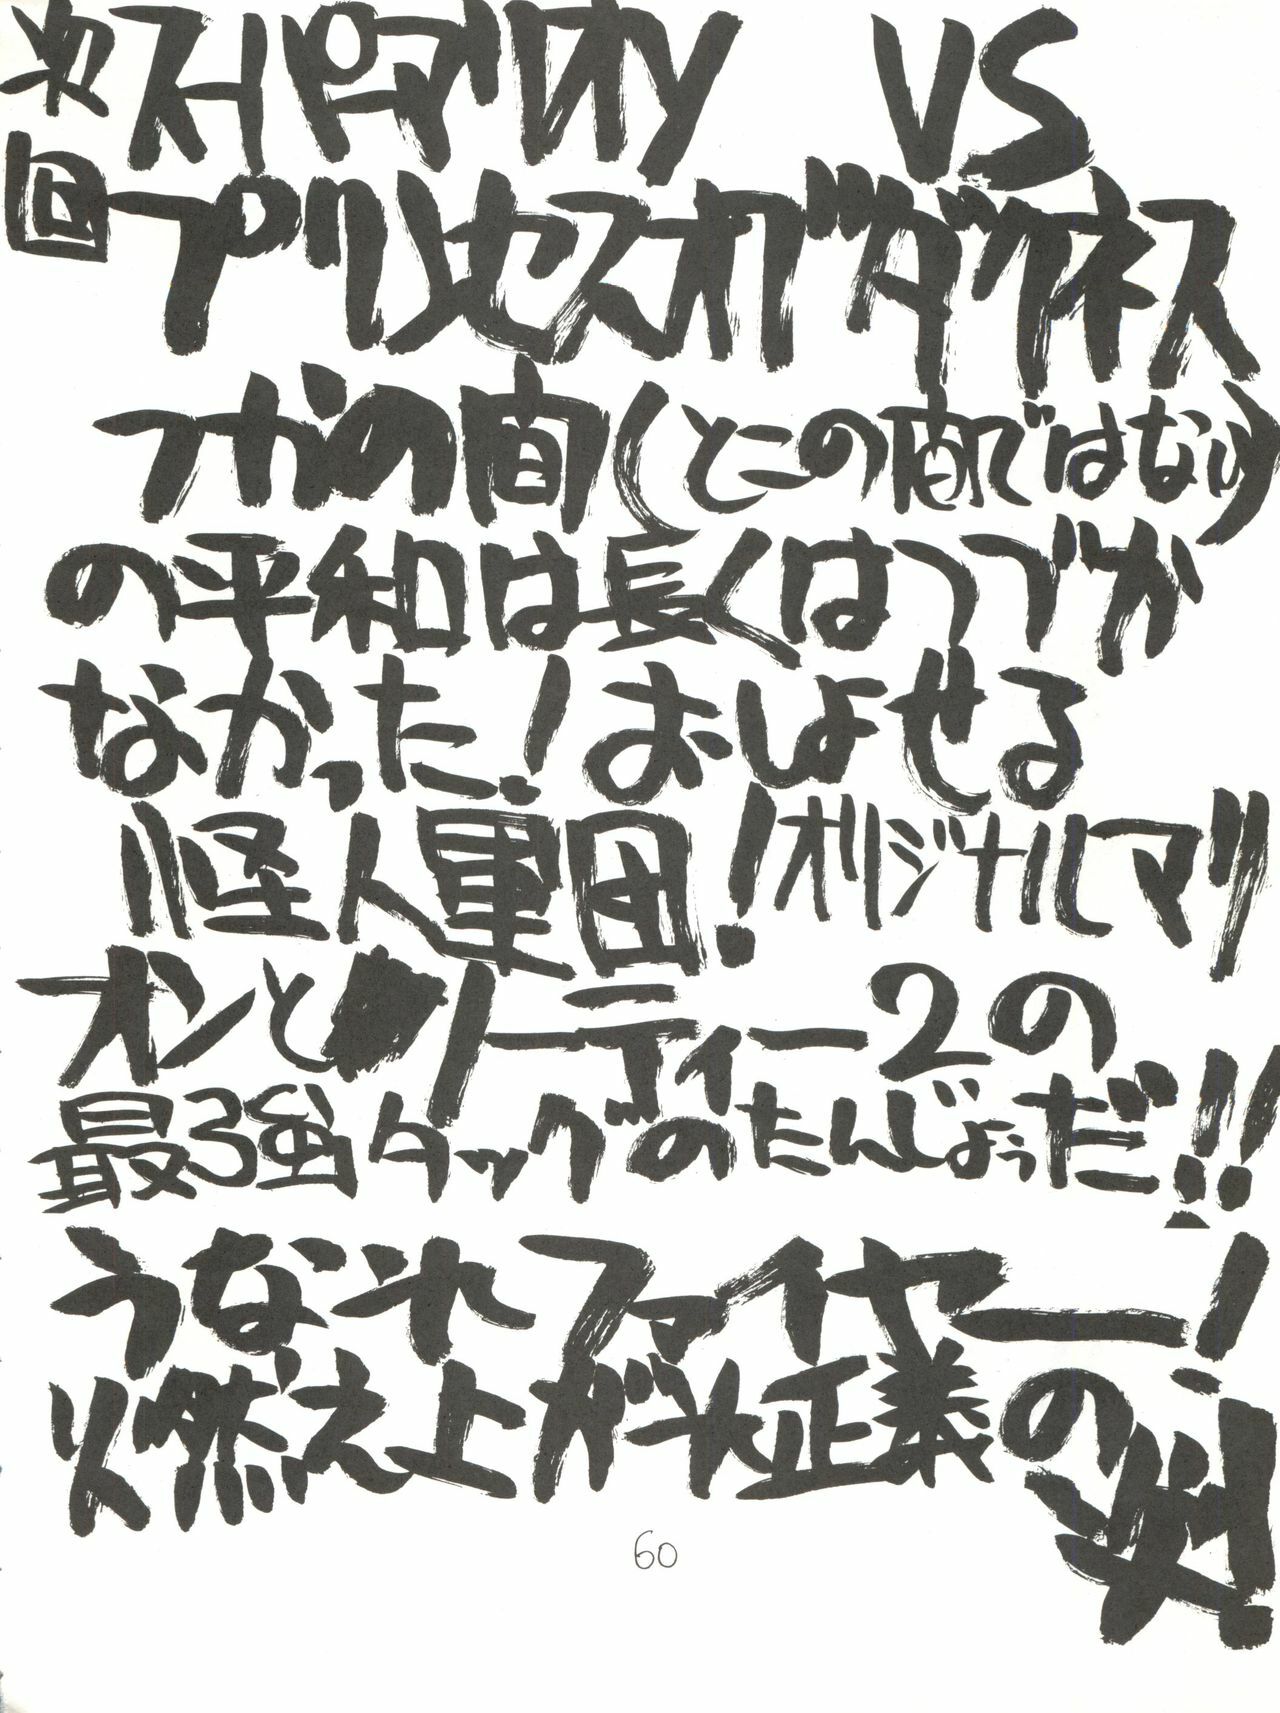 次回 スーパーマリオン VS
プリンセスオブダークネス
つかの間(とこの間ではない)
の平和は長くはつづか
なかった!おしよせる
怪人軍団!オリジナルマリ
オンとリーティー2の
最強タッグのたんじょうだ!!
うなれファイヤー!
燃え上がれ正義の炎!
60